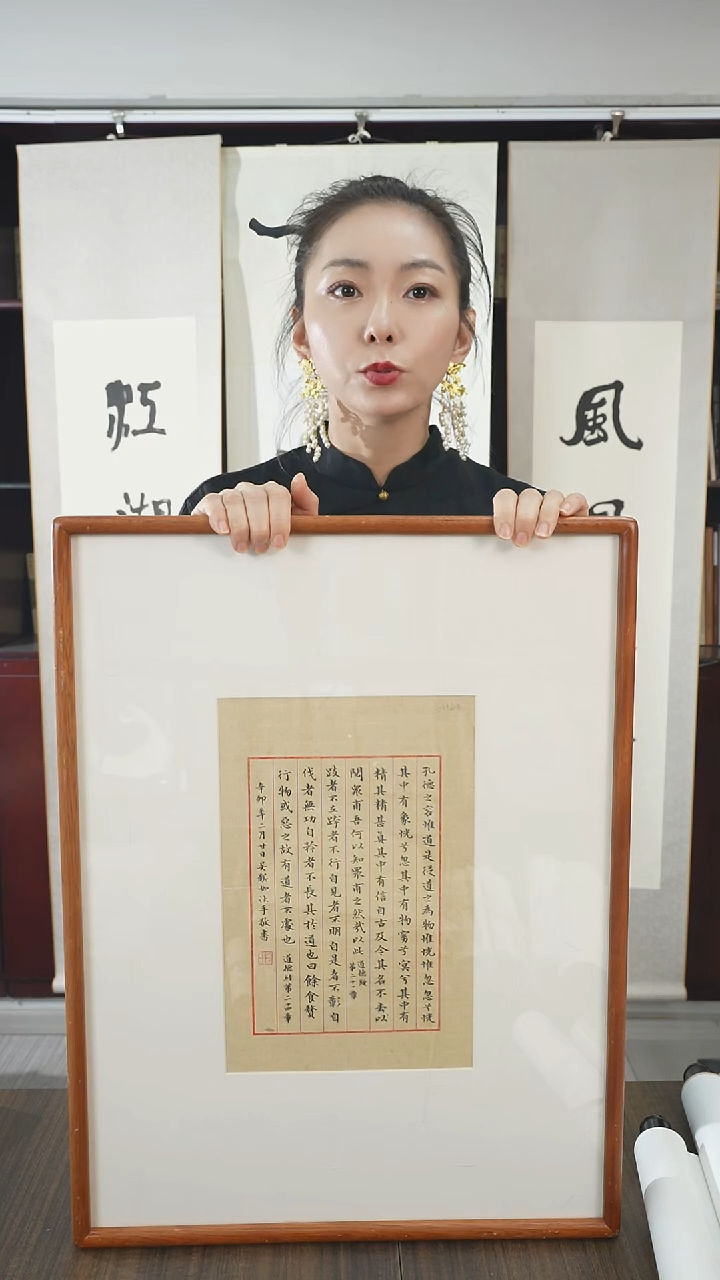 風
孔德之容惟道是從道之為物惟恍惟忽忽兮恍
其中有象恍兮忽其中有物窈兮冥兮其中有
精其精甚真其中有信自古及今其名不去以
閱衆甫吾何以知衆甫之然哉以此 道德經第二十一章
跂者不立跨者不行自見者不明自是者不彰自
伐者無功自矜者不長其於道也曰餘食贅
行物或惡之故有道者不處也 道德經第二十四章
辛卯年二月廿日吴如沐手敬書